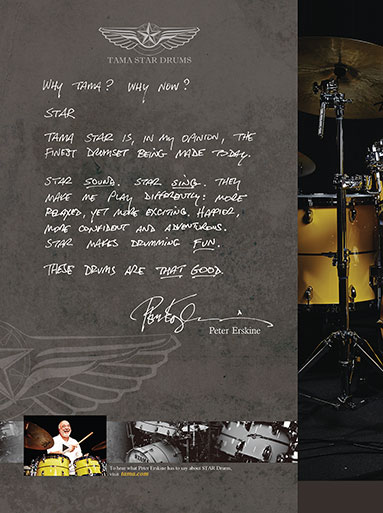 TAMA STAR DRUMS
WHY TAMA? WHY NOW?
STAR
TAMA STAR IS, IN MY OPINION, THE
FINEST DRUMSET BEING MADE TODAY.
STAR SOUND. STAR SING. THEY
MAKE ME PLAY DIFFERENTLY: MORE
RELAXED, YET MORE EXCITING. HAPPIER,
MORE CONFIDENT AND ADVENTUROUS.
STAR MAKES DRUMMING FUN.
THESE DRUMS ARE THAT GOOD.
Peter Erskine
To hear what Peter Erskine has to say about STAR Drums,
visit tama.com